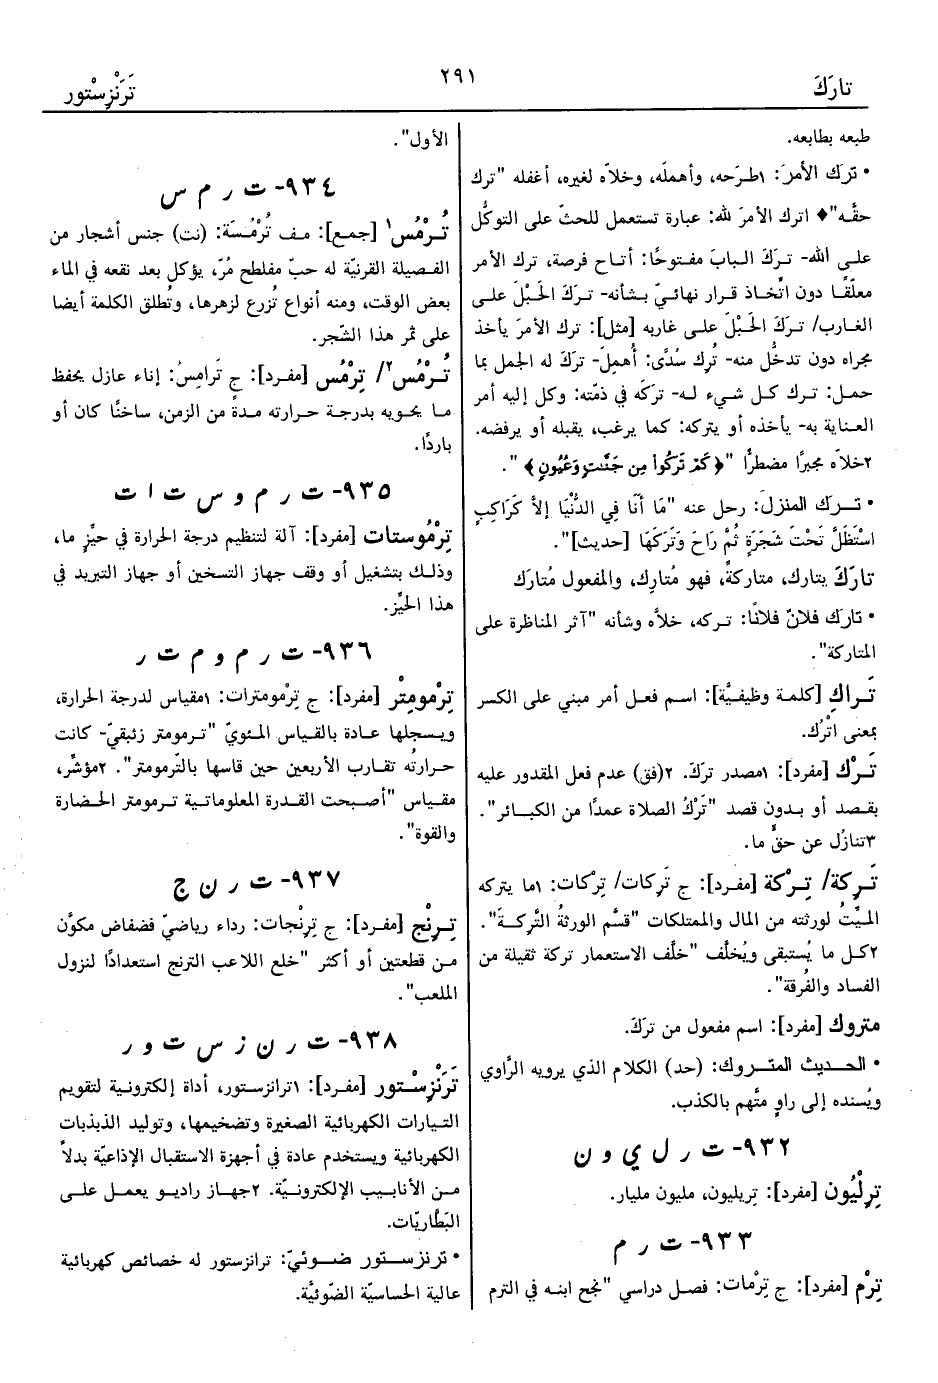 تارَكَ
٢٩١
تَرَنْزِسْتور
طبعه بطابعه.
• تركَ الأمرَ: ١طـرَحه، وأهملَه، وخلاّه لغيره، أغفله "ترك
حقَّه"♦ اترك الأمرَ لله: عبارة تستعمل للحثّ على التوكُّل
على الله- تـركَ الـبابَ مفـتوحًا: أتـاح فرصة، ترك الأمر
معلّقًا دون اتِّخاذ قـرار نهائيّ بـشأنه- تـركَ الحَبْلَ علـى
الغارب/ تـركَ الحَبْلَ علـى غاربه [مثل]: ترك الأمرَ يأخذ
مجراه دون تدخُّل منه- تُرك سُدًى: أُهمِلَ- تركَ له الجمل بما
حمل: تـرك كـل شـيء لـه- تركَه في ذمّته: وكل إليه أمر
العـناية به- يأخذه أو يتركه: كما يرغب، يقبله أو يرفضه.
٢خلاّه مجبرًا مضطرًّا "﴿كَمْ تَرَكُوا مِن جَنَّٰتٍ وَعُيُونٍ﴾".
• تـرك المنزلَ: رحل عنه "مَا أَنَا فِي الدُّنْيَا إلاَّ كَرَاكِبٍ
اسْتَظَلَّ تَحْتَ شَجَرَةٍ ثُمَّ رَاحَ وَتَرَكَهَا [حديث]".
تارَكَ يتارك، متاركةً، فهو مُتارِك، والمفعول مُتارَك
• تارك فلانٌ فلانًا: تـركه، خلاَّه وشأنه "آثر المناظرة على
المتاركة".
تَـراكِ [كلمة وظيفيَّة]: اسـم فعـل أمر مبني على الكسر
بمعنى اتْرُك.
تَـرْك [مفرد]: ١مصدر تركَ. ٢(فق) عدم فعل المقدور عليه
بقـصد أو بـدون قصد "تَرْكُ الصلاة عمدًا من الكبـائر".
٣تنازُل عن حقٍّ ما.
تَـرِكة/ تِـرْكة [مفرد]: ج تَرِكات/ تِرْكات: ١ما يتركه
الميِّتُ لورثته من المال والممتلكات "قسَّم الورثةُ التَّركـةَ".
٢كـل ما يُستبقى ويُخلَّف "خلَّف الاستعمار تركة ثقيلة من
الفساد والفُرقة".
متروك [مفرد]: اسم مفعول من تركَ.
• الحـديث المتـروك: (حد) الكلام الذي يرويه الرَّاوي
ويُسنده إلى راوٍ متَّهم بالكذب.
٩٣٢- ت ر ل ي و ن
تِرِلْيُون [مفرد]: تريليون، مليون مليار.
٩٣٣- ت ر م
تِرْم [مفرد]: ج تِرْمات: فصل دراسي "نجح ابنه في الترم
الأول".
٩٣٤- ت ر م س
تُـرْمُس١ [جمع]: مـف تُرْمُسَة: (نت) جنس أشجار من
الفـصيلة القرنيّة له حبّ مفلطح مُرّ، يؤكل بعد نقعه في الماء
بعض الوقت، ومنه أنواع تُزرع لزهرها، وتُطلق الكلمة أيضا
على ثمر هذا الشّجر.
تُـرْمُس٢/ تِرْمُس [مفرد]: ج تَرامِسُ: إناء عازل يحفظ
ما يحويه بدرجة حـرارته مـدة من الزمن، ساخنًا كان أو
باردًا.
٩٣٥- ت ر م و س ت ا ت
تِرْمُوستات [مفرد]: آلة لتنظيم درجة الحرارة في حيِّز ما،
وذلـك بتشغيل أو وقف جهاز التسخين أو جهاز التبريد في
هذا الحيِّز.
٩٣٦- ت ر م و م ت ر
تِرْمومِتْر [مفرد]: ج تِرْمومترات: ١مقياس لدرجة الحرارة،
ويـسجلها عـادة بالقـياس المـئويّ "تـرمومتر زئبقيّ- كانت
حرارتُه تقارب الأربعين حين قاسها بالتّرمومتر". ٢مؤشّر،
مقياس "أصـبحت القـدرة المعلوماتـية تـرمومتر الحضارة
والقوة".
٩٣٧- ت ر ن ج
تِـرِنْج [مفـرد]: ج تِرِنْجات: رداء رياضيّ فضفاض مكوَّن
مـن قطعتين أو أكثر "خلع اللاعب الترنج استعدادًا لنزول
الملعب".
٩٣٨- ت ر ن ز س ت و ر
تَرَنْزِسْتور [مفرد]: ١ترانزستور، أداة إلكترونـية لتقويم
التـيارات الكهربائية الصغيرة وتضخيمها، وتوليد الذبذبات
الكهربائية ويستخدم عادة في أجهزة الاستقبال الإذاعيّة بدلاً
مـن الأنابيب الإلكترونـيّة. ٢جهـاز راديو يعمل علـى
البَطَّاريَّات.
• ترنزسـتور ضـوئيّ: ترانزستور له خصائص كهربائية
عالية الحساسيَّة الضّوئيَّة.